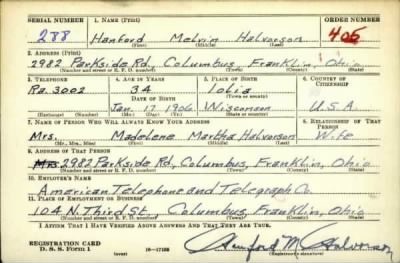 SERIAL NUMBER 1. NAME (Print) ORDER NUMBER
288 Hanford Melvin Halvorson 405
(First) (Middle) (Last)
2. ADDRESS (Print)
2982 Parkside Rd, Columbus, Franklin, Ohio
(Number and street or R. F. D. number) (Town) (County) (State)
3. TELEPHONE 4. AGE IN YEARS 5. PLACE OF BIRTH 6. COUNTRY OF CITIZENSHIP
Ra. 3002 34 Iolia
DATE OF BIRTH (Town or county)
Jan. 17 1906 Wisconson U.S.A
(Exchange) (Number) (Mo.) (Day) (Yr.) (State or country)
7. NAME OF PERSON WHO WILL ALWAYS KNOW YOUR ADDRESS 8. RELATIONSHIP OF THAT PERSON
Mrs. Madelene Martha Halvorson Wife
(Mr., Mrs., Miss) (First) (Middle) (Last)
9. ADDRESS OF THAT PERSON
2982 Parkside Rd, Columbus, Franklin, Ohio
(Number and street or R. F. D. number) (Town) (County) (State)
10. EMPLOYER'S NAME
American Telephone and Telegraph Co.
11. PLACE OF EMPLOYMENT OR BUSINESS
104 N. Third St. Columbus, Franklin, Ohio
(Number and street or R. F. D. number) (Town) (County) (State)
I AFFIRM THAT I HAVE VERIFIED ABOVE ANSWERS AND THAT THEY ARE TRUE.
REGISTRATION CARD
D. S. S. Form 1 16—17105 Hanford M Halvorson
(Registrant's signature)